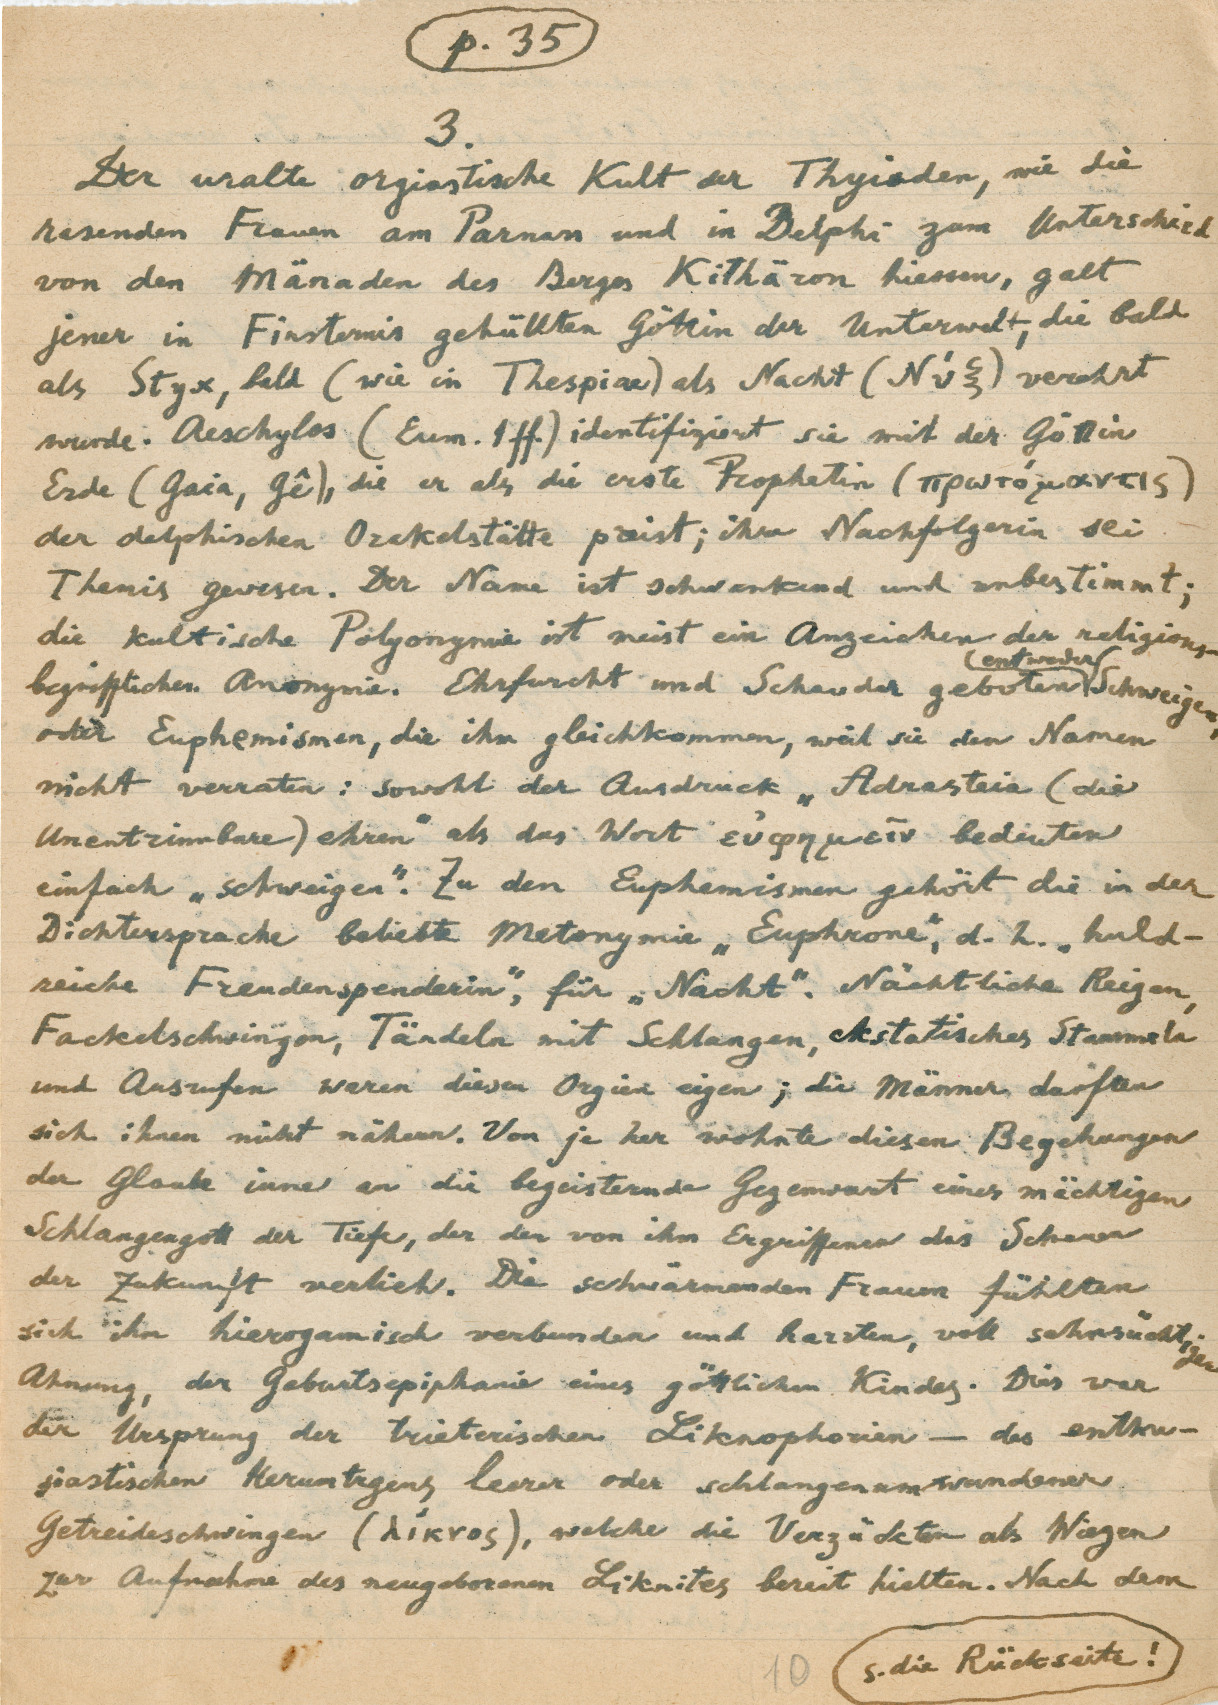 p. 35
3.
Der uralte orgiastische Kult der Thyiaden, wie die
rasenden Frauen am Parnass und in Delphi zum Unterschied
von den Mänaden des Berges Kithäron hiessen, galt
jener in Finsternis gehüllten Göttin der Unterwelt, die bald
als Styx, bald (wie in Thespiae) als Nacht (Νύξ) verehrt
wurde. Aeschylos (Eum. 1 ff.) identifiziert sie mit der Göttin
Erde (Gaia, Gê), die er als die erste Prophetin (πρωτόμαντις)
der delphischen Orakelstätte preist; ihre Nachfolgerin sei
Themis gewesen. Der Name ist schwankend und unbestimmt;
die kultische Polyonymie ist meist ein Anzeichen der religions-
begrifflichen Anonymie. Ehrfurcht und Schauder geboten (entweder) Schweigen,
oder Euphemismen, die ihm gleichkommen, weil sie den Namen
nicht verraten: sowohl der Ausdruck „Adrasteia (die
Unentrinnbare) ehren" als das Wort εὐφημεῖν bedeuten
einfach „schweigen". Zu den Euphemismen gehört die in der
Dichtersprache beliebte Metonymie „Euphrone", d. h. „huld-
reiche Freudenspenderin", für „Nacht". Nächtliche Reigen,
Fackelschwingen, Tändeln mit Schlangen, ekstatisches Stammeln
und Ausrufen waren diesen Orgien eigen; die Männer durften
sich ihnen nicht nähern. Von je her wohnte diesen Begehungen
der Glaube inne an die begeisternde Gegenwart eines mächtigen
Schlangengott der Tiefe, der den von ihm Ergriffenen das Schauen
der Zukunft verlieh. Die schwärmenden Frauen fühlten
sich ihm hierogamisch verbunden und harrten, voll sehnsüchtiger
Ahnung, der Geburtsepiphanie eines göttlichen Kindes. Dies war
der Ursprung der trieterischen Liknophorien — des enthu-
siastischen Herumtragens leerer oder schlangenumwundener
Getreideschwingen (λίκνος), welche die Verzückten als Wiegen
zur Aufnahme des neugeborenen Liknites bereit hielten. Nach dem
10
s. die Rückseite!